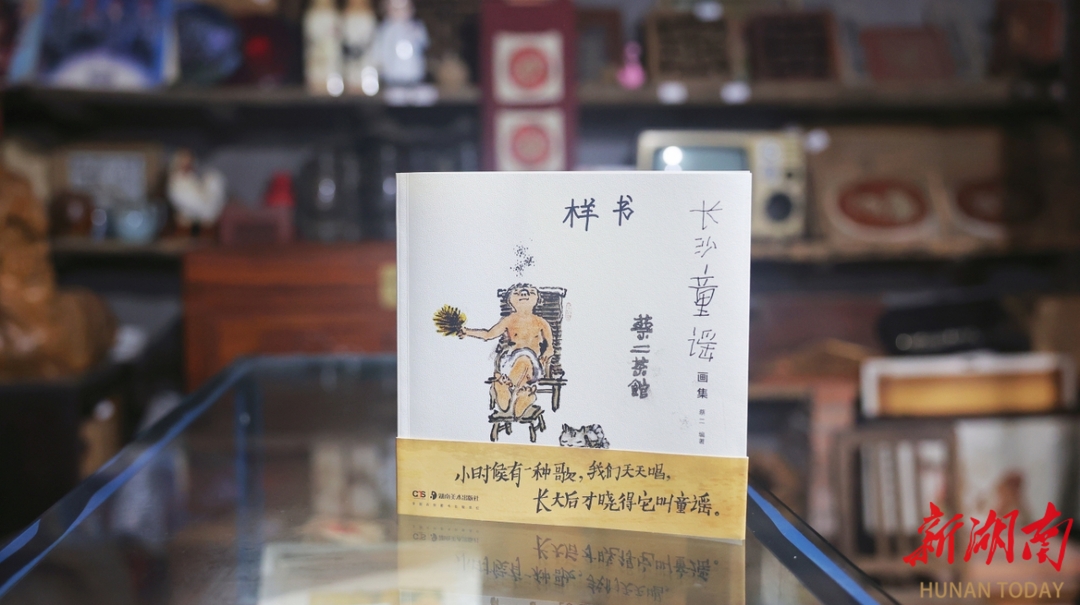 样书
长沙童谣
画集
蔡二 编著
蔡二茶館
小时候有一种歌,我们天天唱,
长大后才晓得它叫童谣。
CS 湖南美术出版社
新湖南
HUNAN TODAY